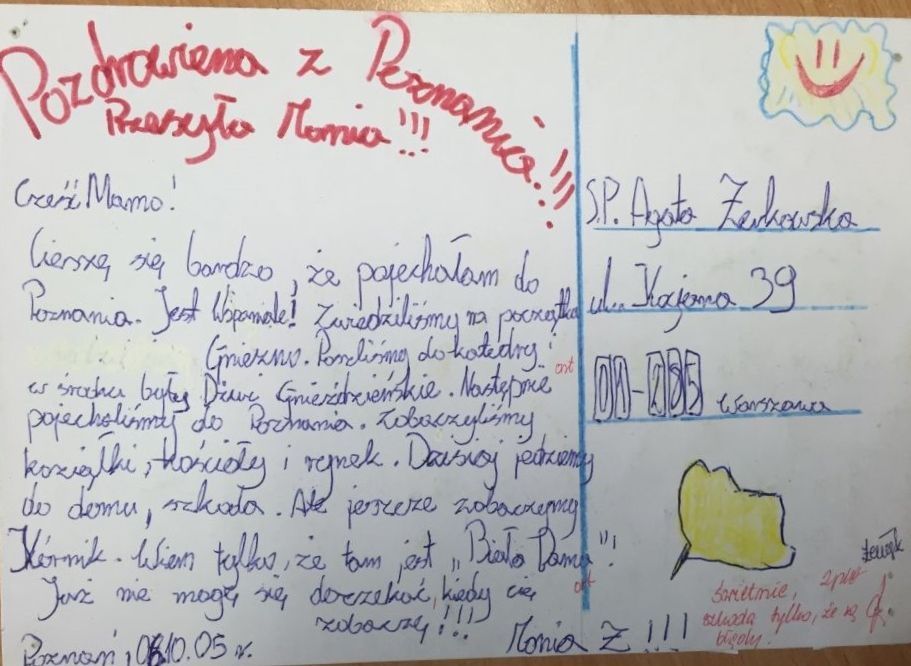 Pozdrowiena z Poznania!!!
Przesyła Monia!!!
Cześć Mamo!
Cieszę się bardzo, że pojechałam do
Poznania. Jest Wspaniale! Zwiedziliśmy na początku
Gniezno. Poszliśmy do katedry i
ort
w środku były Dzwi Gnieździeńskie. Następnie
pojechaliśmy do Poznania. Zobaczyliśmy
koziąłki, kościoły i rynek. Dzisiaj jedziemy
do domu, szkoda. Ale jeszcze zobaczymy
Kórnik. Wiem tylko, że tam jest „Biała Dama"!
Już nie mogę się doczekać, kiedy cię
ort
zobaczę!!!
Monia Ż!!!
Poznań, 06.10.05 r.
S.P. Agata Żewkowska
ul. Kajerna 39
01-285 Warszawa
świetnie,
szkoda tylko, że są
błędy.